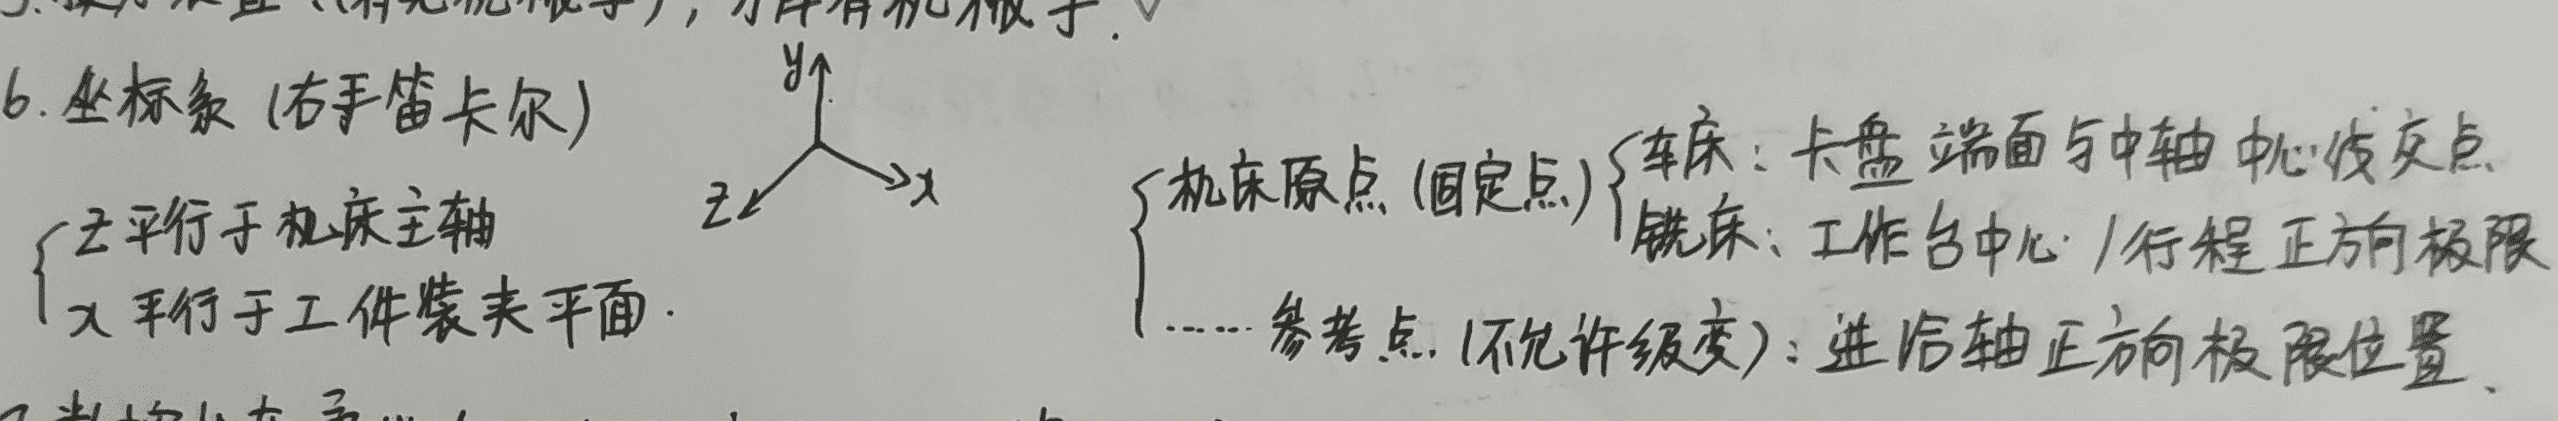 6.坐标系(右手笛卡尔)
y
z
x
z平行于机床主轴
x平行于工件装夹平面.
机床原点(固定点)
车床:卡盘端面与中轴中心线交点
铣床:工作台中心/行程正方向极限
……参考点(不允许级变):进给轴正方向极限位置、